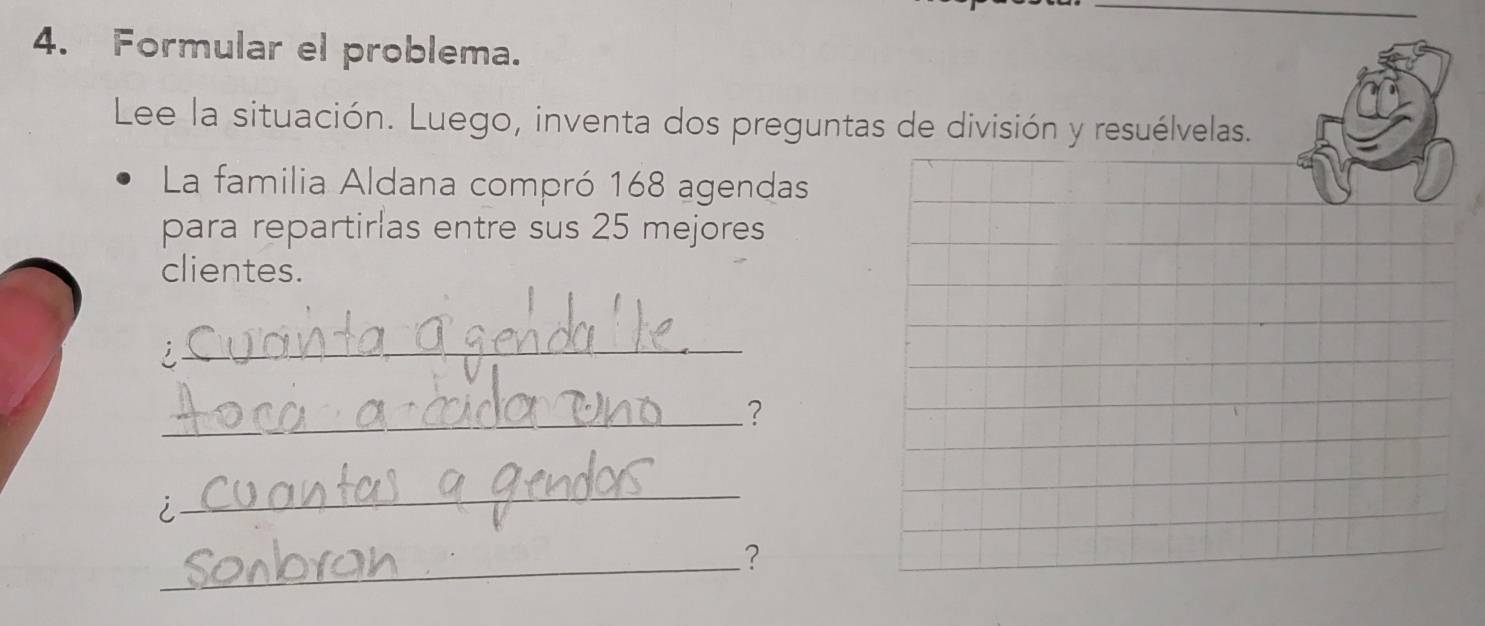 4. Formular el problema.
Lee la situación. Luego, inventa dos preguntas de división y resuélvelas.
• La familia Aldana compró 168 agendas
para repartirlas entre sus 25 mejores
clientes.
¿cuanta agenda le
toca a cada uno?
¿cuantas agendas
sonbran?